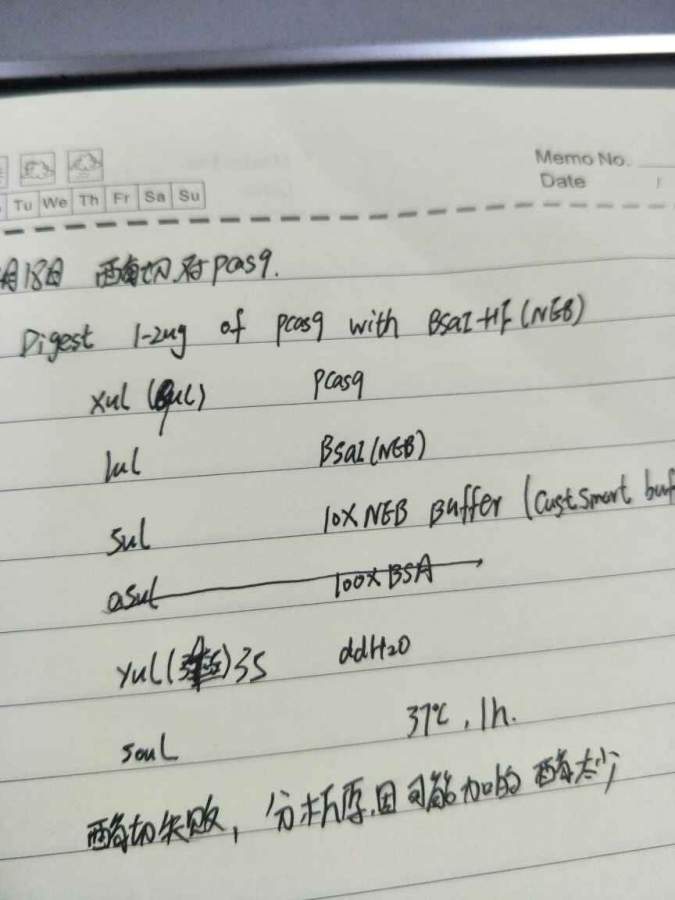 Memo No.
Date
Tu We Th Fr Sa Su
月18日 酶切对pcas9.
Digest 1-2ug of pcas9 with BsaI-HF (NEB)
xul ( uL) pcas9
1ul BsaI (NEB)
5ul 10X NEB Buffer (CustSmart buf
0.5ul 100X BSA
yul ( )35 ddH2O
50uL 37℃, 1h.
酶切失败, 分析原因可能加的酶太少